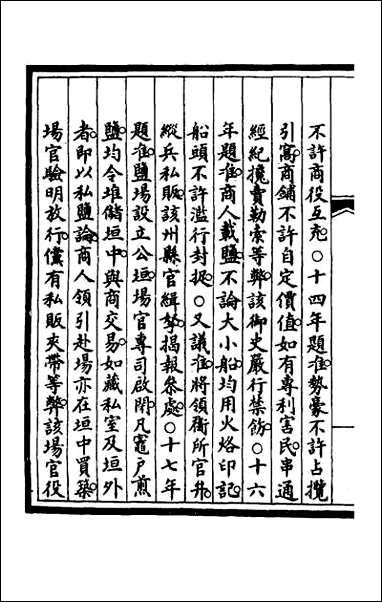 不許商役互充○十四年題准勢豪不許占攬
引窩商鋪不許自定價值如有專利害民串通
經紀攙賣勒索等弊該御史嚴行禁飭○十六
年題准商人載鹽不論大小船均用火烙印記
船頭不許濫行封捉○又議准將領衛所官弁
縱兵私販該州縣官緝拏揭報叅處○十七年
題准鹽場設立公垣場官專司啟閉凡竈戶煎
鹽均令堆儲垣中與商交易如藏私室及垣外
者即以私鹽論商人領引赴場亦在垣中買築
場官驗明放行儻有私販夾帶等弊該場官役